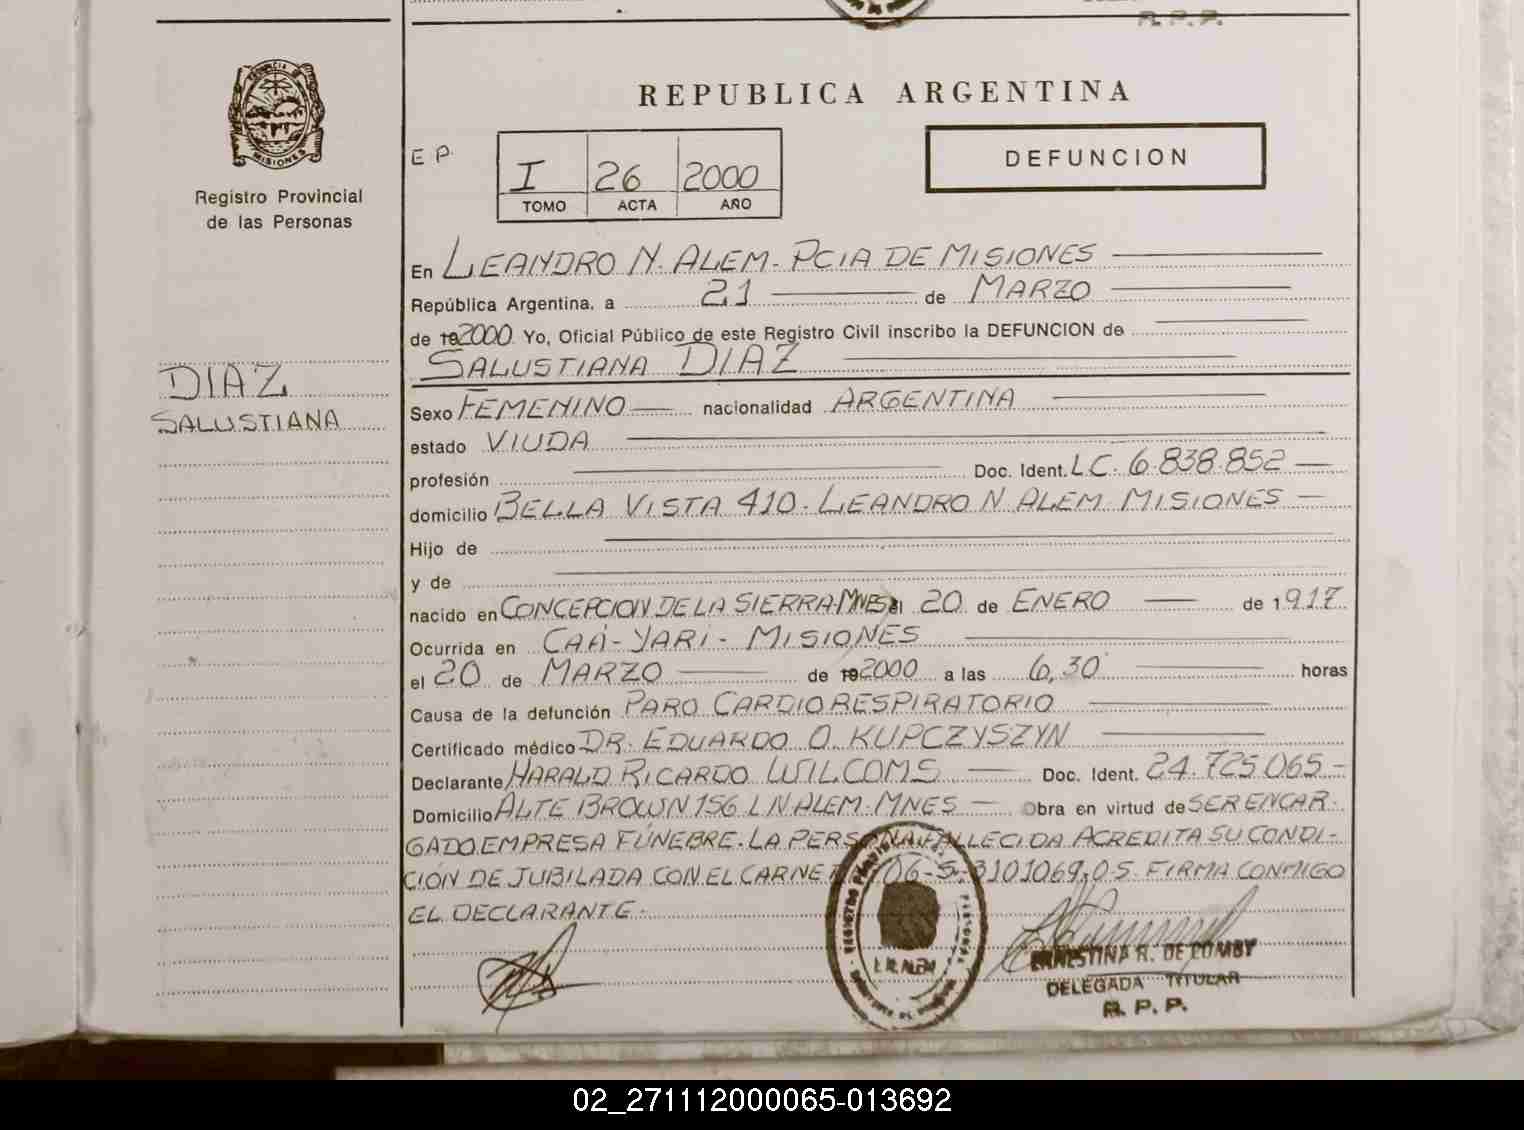 R.P.P.
REPUBLICA ARGENTINA
PROVINCIA DE
MISIONES
Registro Provincial
de las Personas
E P.
I 26 2000
TOMO ACTA AÑO
DEFUNCION
DIAZ
SALUSTIANA
En LEANDRO N. ALEM - PCIA DE MISIONES
República Argentina, a 21 de MARZO
de 192000. Yo, Oficial Público de este Registro Civil inscribo la DEFUNCION de
SALUSTIANA DIAZ
Sexo FEMENINO nacionalidad ARGENTINA
estado VIUDA
profesión Doc. Ident. L C. 6.838.852
domicilio BELLA VISTA 410 - LEANDRO N ALEM MISIONES
Hijo de
y de
nacido en CONCEPCION DE LA SIERRA MNES el 20 de ENERO de 1917
Ocurrida en CAÁ-YARI - MISIONES
el 20 de MARZO de 192000 a las 6,30 horas
Causa de la defunción PARO CARDIORESPIRATORIO
Certificado médico DR. EDUARDO O. KUPCZYSZYN
Declarante HARALD RICARDO WILCOMS Doc. Ident. 24.725.065
Domicilio ALTE BROWN 156 L N ALEM - MNES Obra en virtud de SER ENCAR-
GADO EMPRESA FÚNEBRE. LA PERSONA FALLECIDA ACREDITA SU CONDI-
CIÓN DE JUBILADA CON EL CARNET 06-5-3101069.05. FIRMA CONMIGO
EL DECLARANTE.
L. N. ALEM
ERNESTINA R. DE LOMBY
DELEGADA TITULAR
R. P. P.
02_271112000065-013692